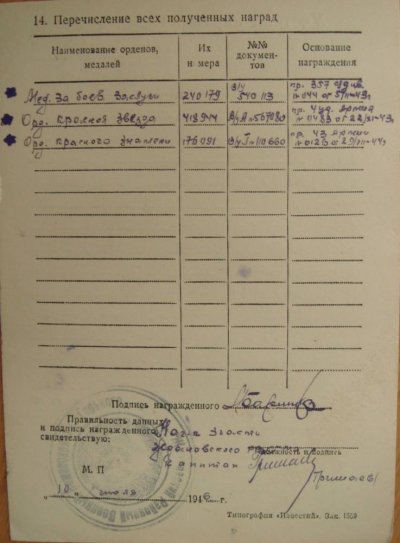 14. Перечисление всех полученных наград
Наименование орденов, медалей
Их номера
№№ документов
Основание награждения
Мед. За боев. Заслуги 240179 в/у 540113 пр. 357 сд
Орд. Красной Звезда 418944 В/у А № 567080 пр. 4 уд. армии № 0483 от 22/XI-43г
Орд. Красного Знамени 176091 В/у № 110660 пр. 43 армии
Подпись награжденного
Правильность данных
и подпись награжденного
свидетельствую:
Нач. 2 части
Должность и подпись
капитан
М. П
„ 10 „ июля 1946 г.
Типография «Известий». Зак. 1569